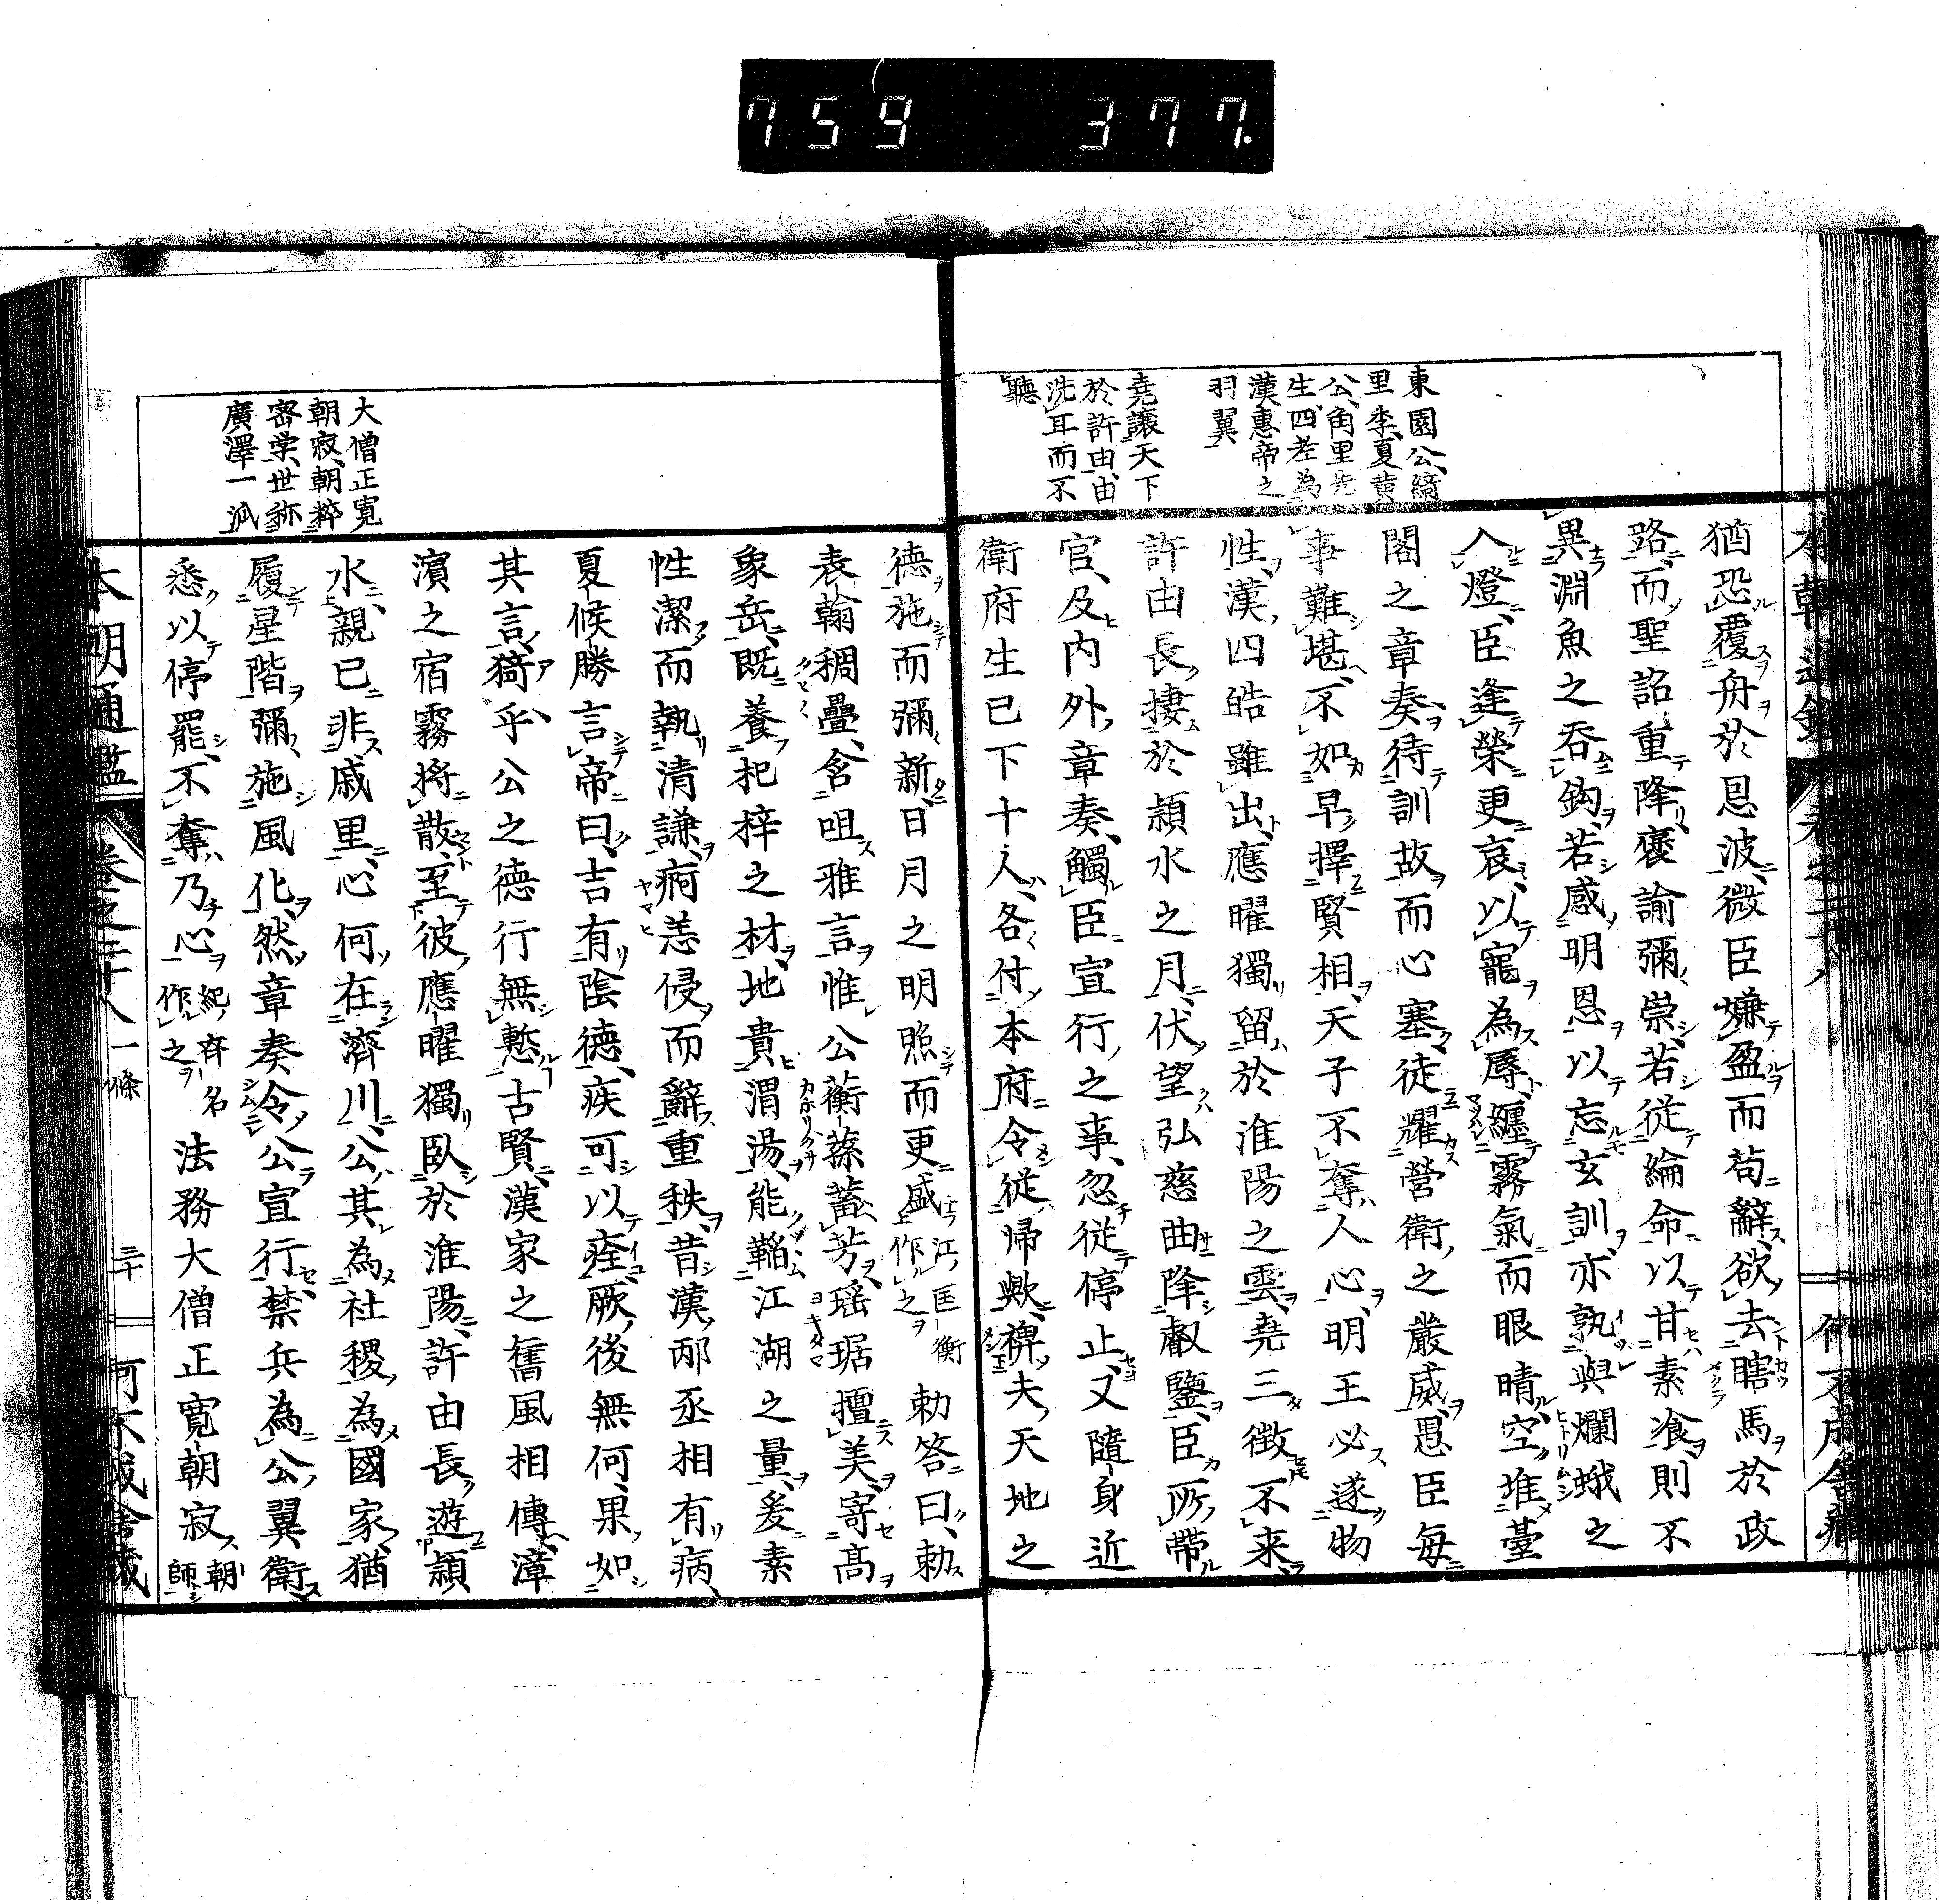 759 377.
東園公、綺
里季、夏黄
公、角里先
生、四老為
漢惠帝之
羽翼
堯讓天下
於許由、由
洗耳而不
聽
猶恐覆舟於恩波、微臣嫌盈而苟辭、欲去瞎馬於政
路、而聖詔重降、褒諭彌崇、若從綸命、以甘素飡、則不
異淵魚之吞鈎、若感明恩、以忘玄訓、亦孰與爛蛾之
入燈、臣逢榮更哀、以寵為辱、纏霧氣而眼晴空、堆臺
閣之章奏、待訓故而心塞、徒耀營衛之嚴威、愚臣每
事難堪、不如早擇賢相、天子不奪人心、明王必遂物
性、漢四皓雖出、應曜獨留於淮陽之雲、堯三徵不来、
許由長棲於潁水之月、伏望弘慈曲降叡鑒、臣所帶
官、及内外章奏、觸臣宣行之事、忽從停止、又隨身近
衛府生已下十人、各付本府、令從歸歟、裨夫天地之
大僧正寛
朝寂、朝粹
密宗、世稱
廣澤一派
德施而彌新、日月之明照而更盛、江匡衡作之 勅答曰、勅
表翰稠疊、含咀雅言、惟公蘅蓀蓄芳、瑶琚擅美、寄髙
象岳、既養杞梓之材、地貴渭湯、能韜江湖之量、爰素
性潔而執清謙、痾恙侵而辭重秩、昔漢邴丞相有病、
夏候勝言帝曰、吉有陰德、疾可以痊、厥後無何、果如
其言、猗乎公之德行無慙古賢、漢家之舊風相傳、漳
濱之宿霧將散、至彼應曜獨臥於淮陽、許由長遊潁
水、親已非戚里、心何在濟川、公其為社稷、為國家、猶
履星階、彌施風化、然章奏令公宣行、禁兵為公翼衛
悉以停罷、不奪乃心、紀齊名作之 法務大僧正寛朝寂、朝師
本朝通鑑 卷之二十八 一條 三十